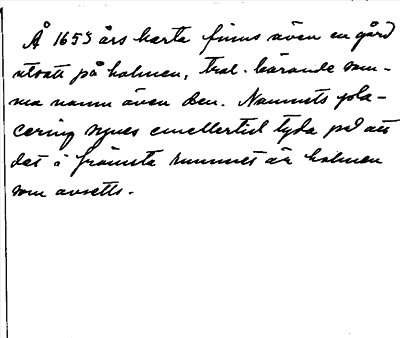 Å 1653 års karta finns även en gård
utsatt på holmen, trol. bärande sam-
ma namn även den. Namnets pla-
cering synes emellertid tyda på att
det i främsta rummet är holmen
som avsetts.